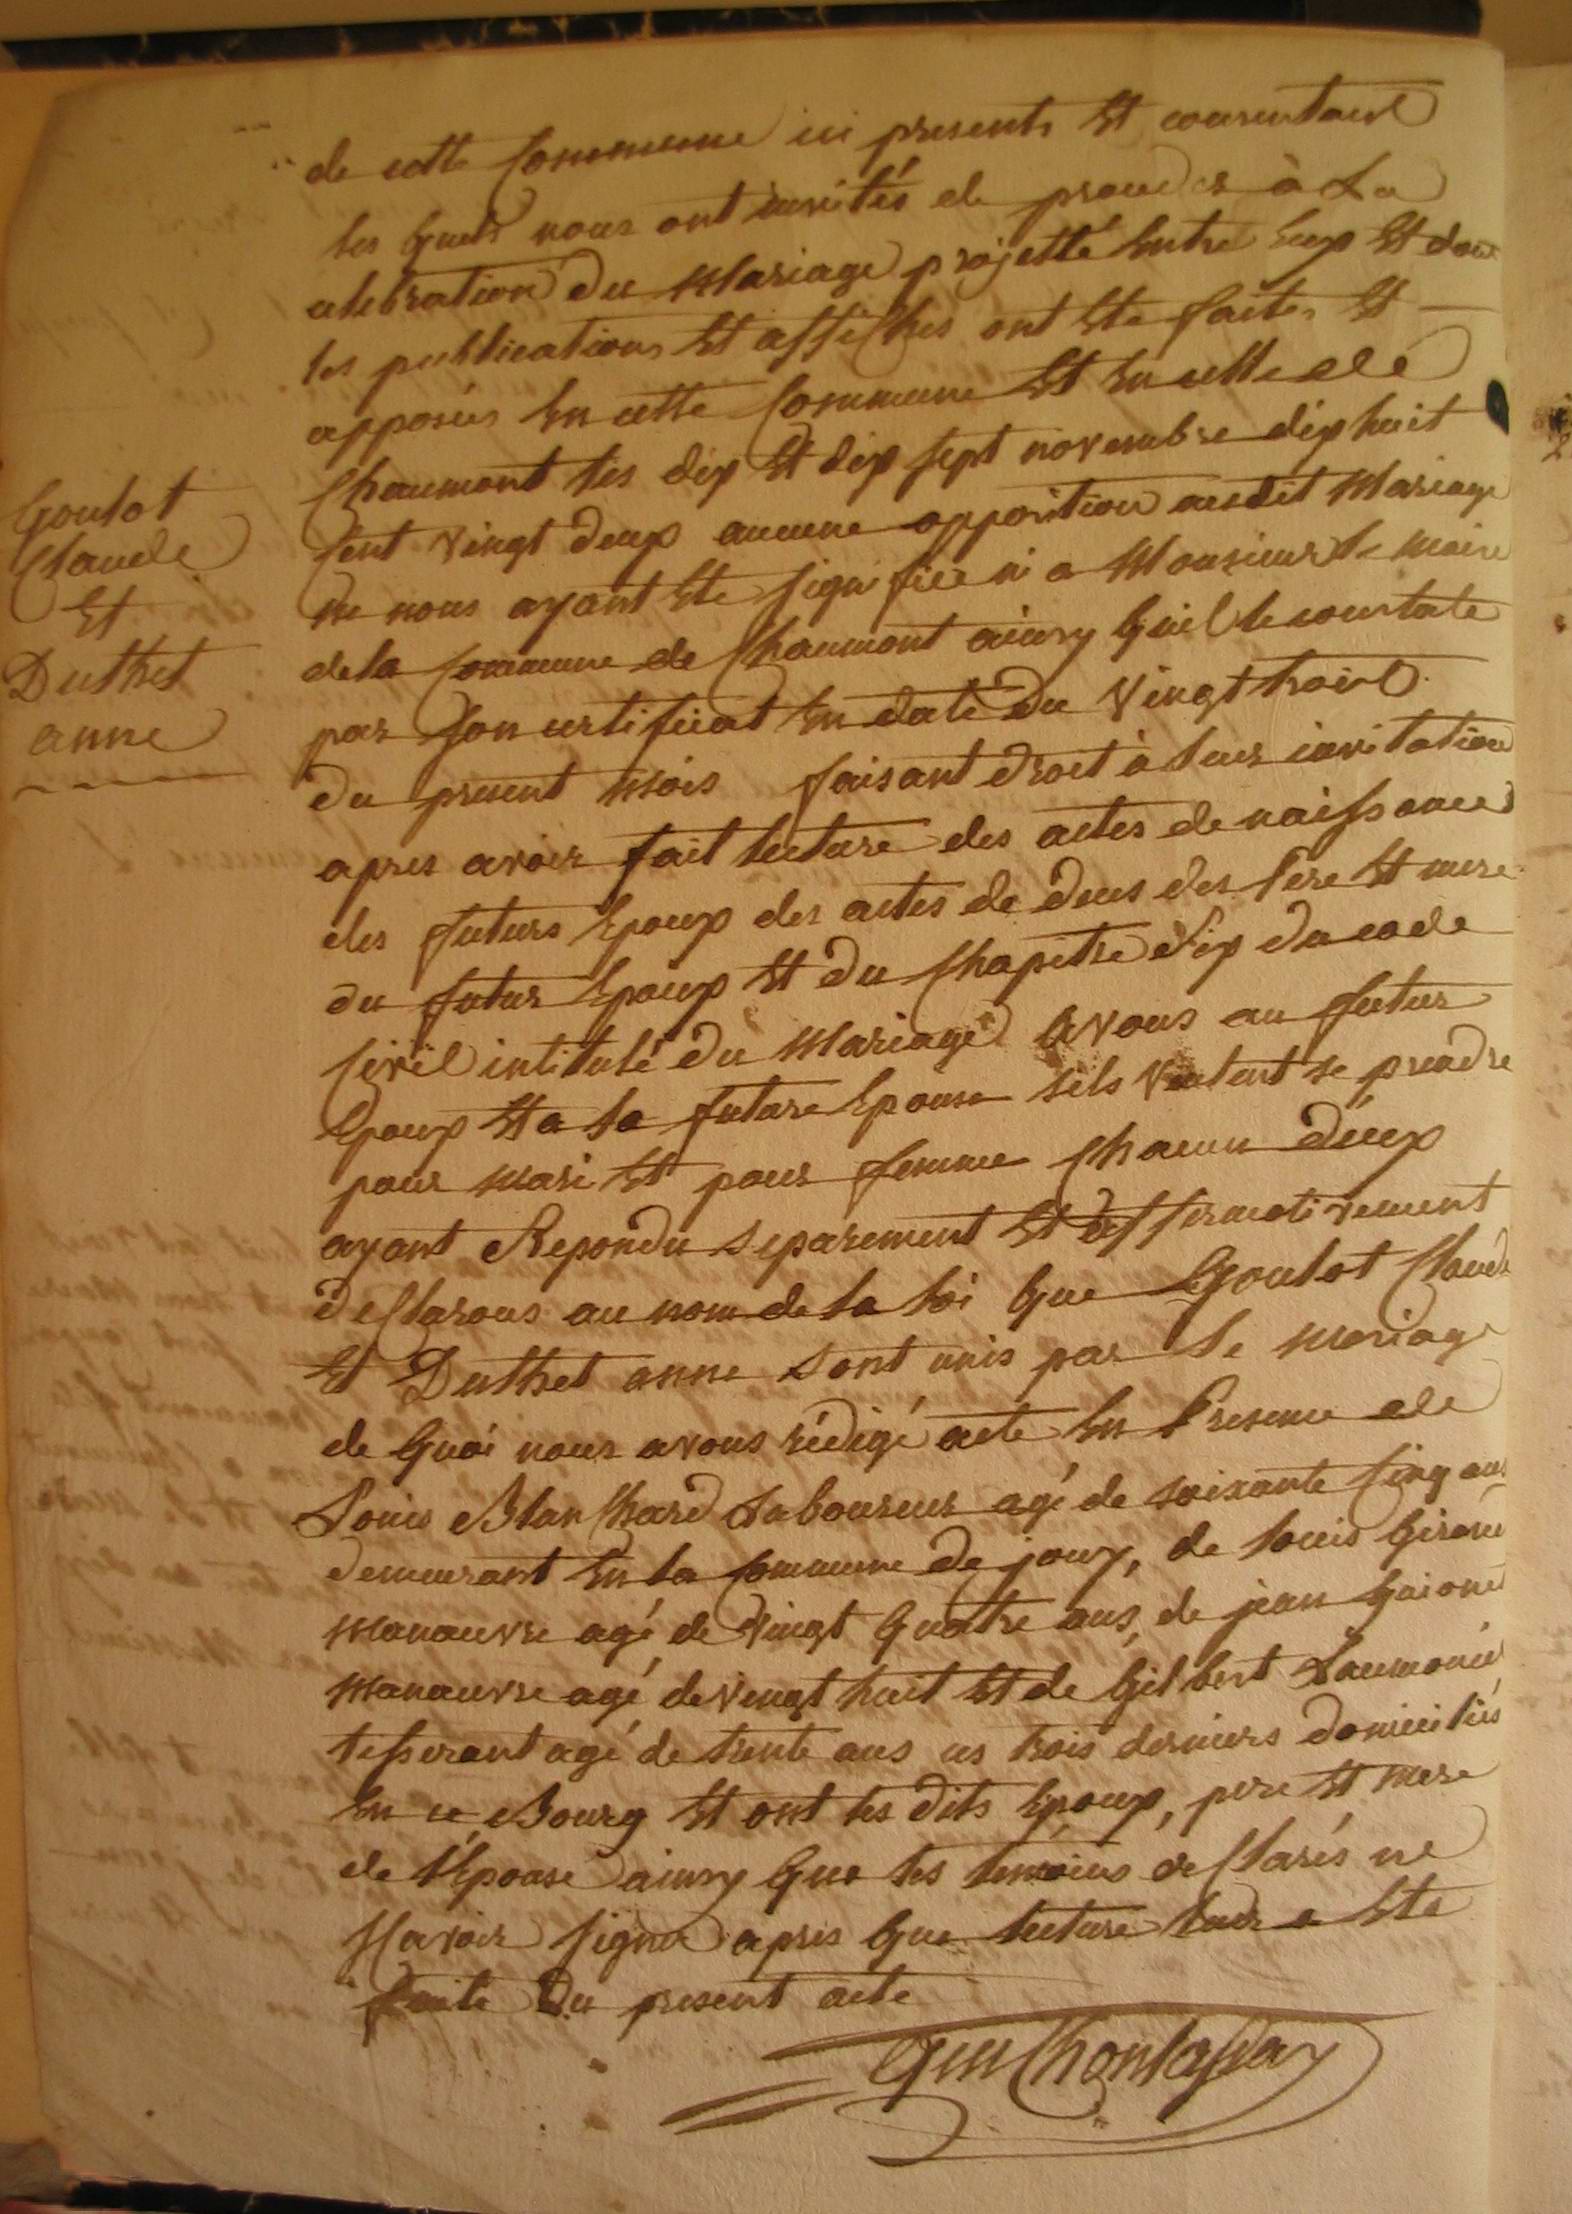 de cette Commune ici presents Et consentans
les quels nous ont invités de proceder à La
celebration du Mariage projetté Entre Eux Et dont
les publications Et affiches ont Ete faites Et
apposées En cette Commune Et En celle de
Chaumont les dix Et dix sept novembre dix huit
Cent Vingt deux aucune opposition audit Mariage
ne nous ayant Ete signifiée ni a Monsieur le Maire
de la Commune de Chaumont ainsy quil le constate
par son certificat En date du Vingt trois
du present Mois faisant droit à leur invitation
apres avoir fait lecture des actes de naissance
des futurs Epoux des actes de deces des Pere Et mere
du futur Epoux Et du Chapitre Six du code
Civil intitulé du Mariage avons au futur
Epoux Et a la future Epouse sils Veulent se prendre
pour Mari Et pour femme Chacun deux
ayant Repondu separement Et affirmativement
declarons au nom de la loi que Goulot Claude
Et Duthet anne sont unis par le Mariage
de quoi nous avons rédigé acte En Presence de
Louis Blanchard Laboureur agé de soixante Cinq ans
demeurant En la Commune de jouy, de louis
Manœuvre agé de Vingt quatre ans, de jean
Manœuvre agé de Vingt huit Et de Gilbert
tisserant agé de trente ans ces trois derniers domiciliés
En ce Bourg Et ont les dits Epoux, pere Et Mere
de l'Epouse ainsy que les témoins declarés ne
Savoir signer apres que lecture leur a Ete
faite Du present acte
Goulot
Claude
Et
Duthet
anne